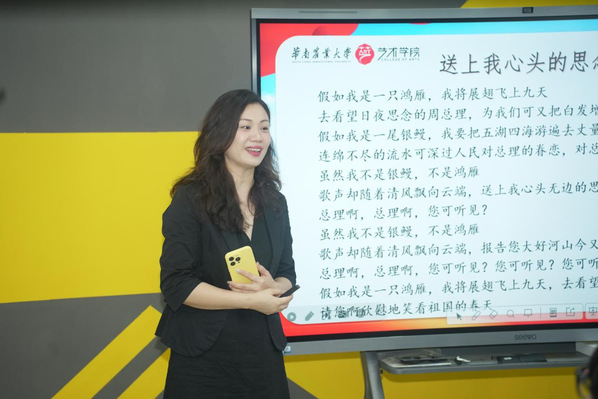 华南农业大学 艺术学院
COLLEGE OF ARTS
送上我心头的思念
假如我是一只鸿雁，我将展翅飞上九天
去看望日夜思念的周总理，为我们可又把白发增
假如我是一尾银鳗，我要把五湖四海游遍去丈量
连绵不尽的流水可深过人民对总理的眷恋，对总
虽然我不是银鳗，不是鸿雁
歌声却随着清风飘向云端，送上我心头无边的思
总理啊，总理啊，您可听见？
虽然我不是银鳗，不是鸿雁
歌声却随着清风飘向云端，报告您大好河山今又
总理啊，总理啊，您可听见？您可听见？您可听
假如我是一只鸿雁，我将展翅飞上九天，去看望
请您啊欣慰地笑看祖国的春天
seewo